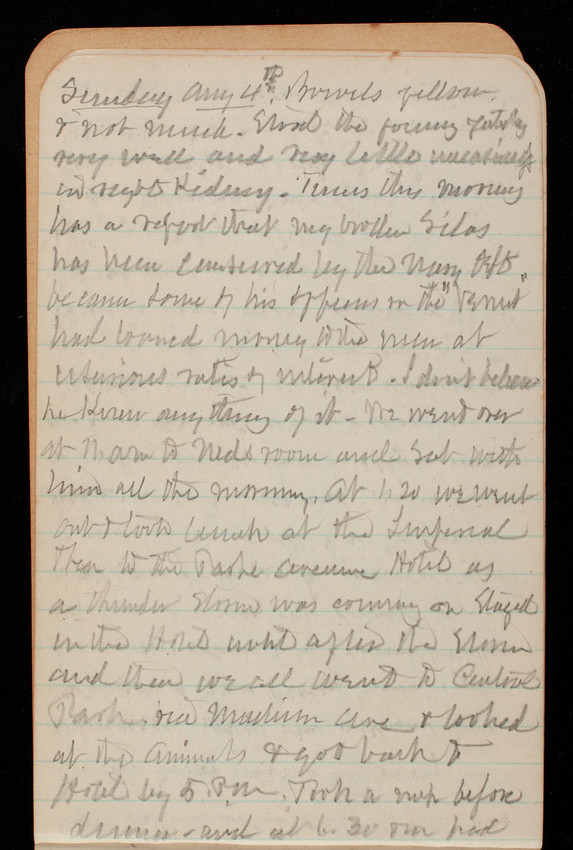 Sunday Aug 4th. Bowels yellow.
& not much. Stood the journey
very well and very little uneasiness
in right Kidney. Times this morning
has a report that my brother Silas
has been censured by the Navy Dept
because some of his officers on the "Vermont"
had loaned money to the men at
usurious rates of interest. I don't believe
he knew anything of it - We went over
at 11 am to Neds room and sat with
him all the morning. At 1.20 we went
out & took lunch at the Imperial
Then to the Park Avenue Hotel as
a thunder storm was coming on Stayed
in the Hotel until after the storm
and then we all went to Central
Park. via Madison ave & looked
at the animals & got back to
Hotel by 5 P.m. Took a nap before
dinner - and at 6.30 P.m had